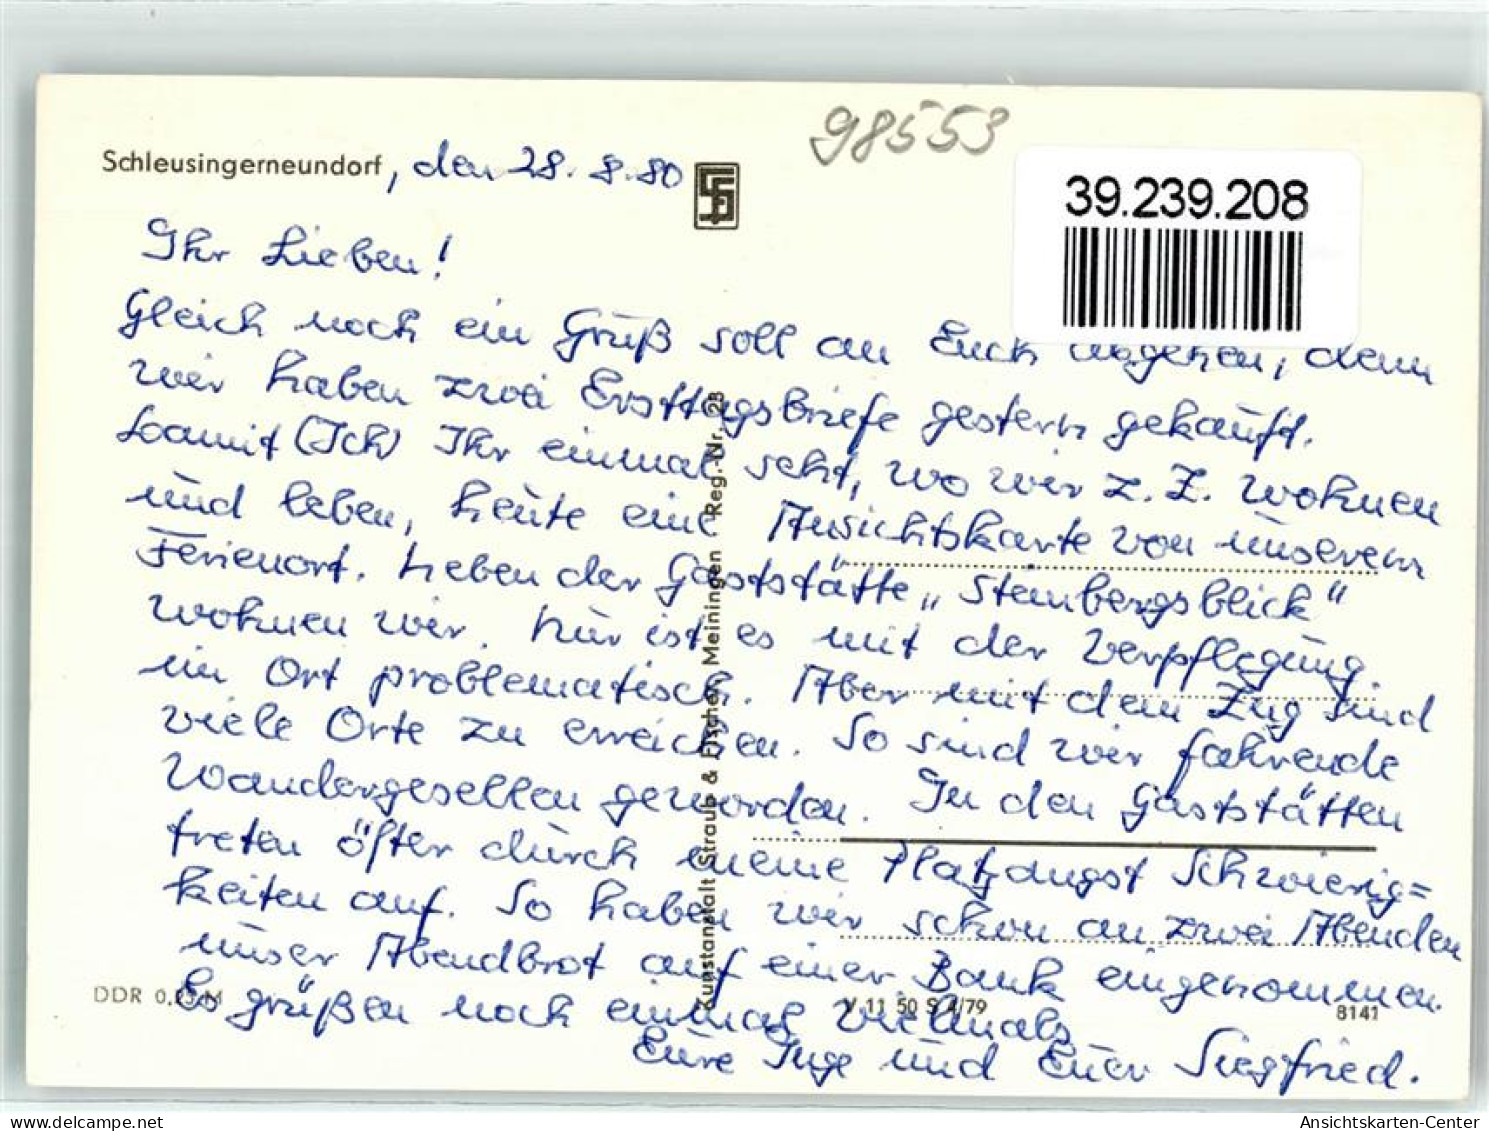 98553
Schleusingerneundorf, den 28.8.80
39.239.208
Ihr Lieben!
Gleich noch ein Gruß soll an Euch abgehen, denn
wir haben zwei Ersttagsbriefe gestern gekauft.
Damit (Ich) Ihr einmal seht, wo wir z. Z. wohnen
und leben, heute eine Ansichtskarte von unserem
Ferienort. Neben der Gaststätte „Steinbergsblick"
wohnen wir. Nur ist es mit der Verpflegung
im Ort problematisch. Aber mit dem Zug sind
viele Orte zu erreichen. So sind wir fahrende
Wandergesellen geworden. In den Gaststätten
treten öfter durch meine Platzangst Schwierig=
keiten auf. So haben wir schon an zwei Abenden
unser Abendbrot auf einer Bank eingenommen.
Es grüßen noch einmal vielmals
Eure Inge und Euer Siegfried.
Kunstanstalt Straub & Fischer, Meiningen · Reg.-Nr. 28
DDR 0,25 M
V 11 50 S 4/79
8141
www.delcampe.net
Ansichtskarten-Center